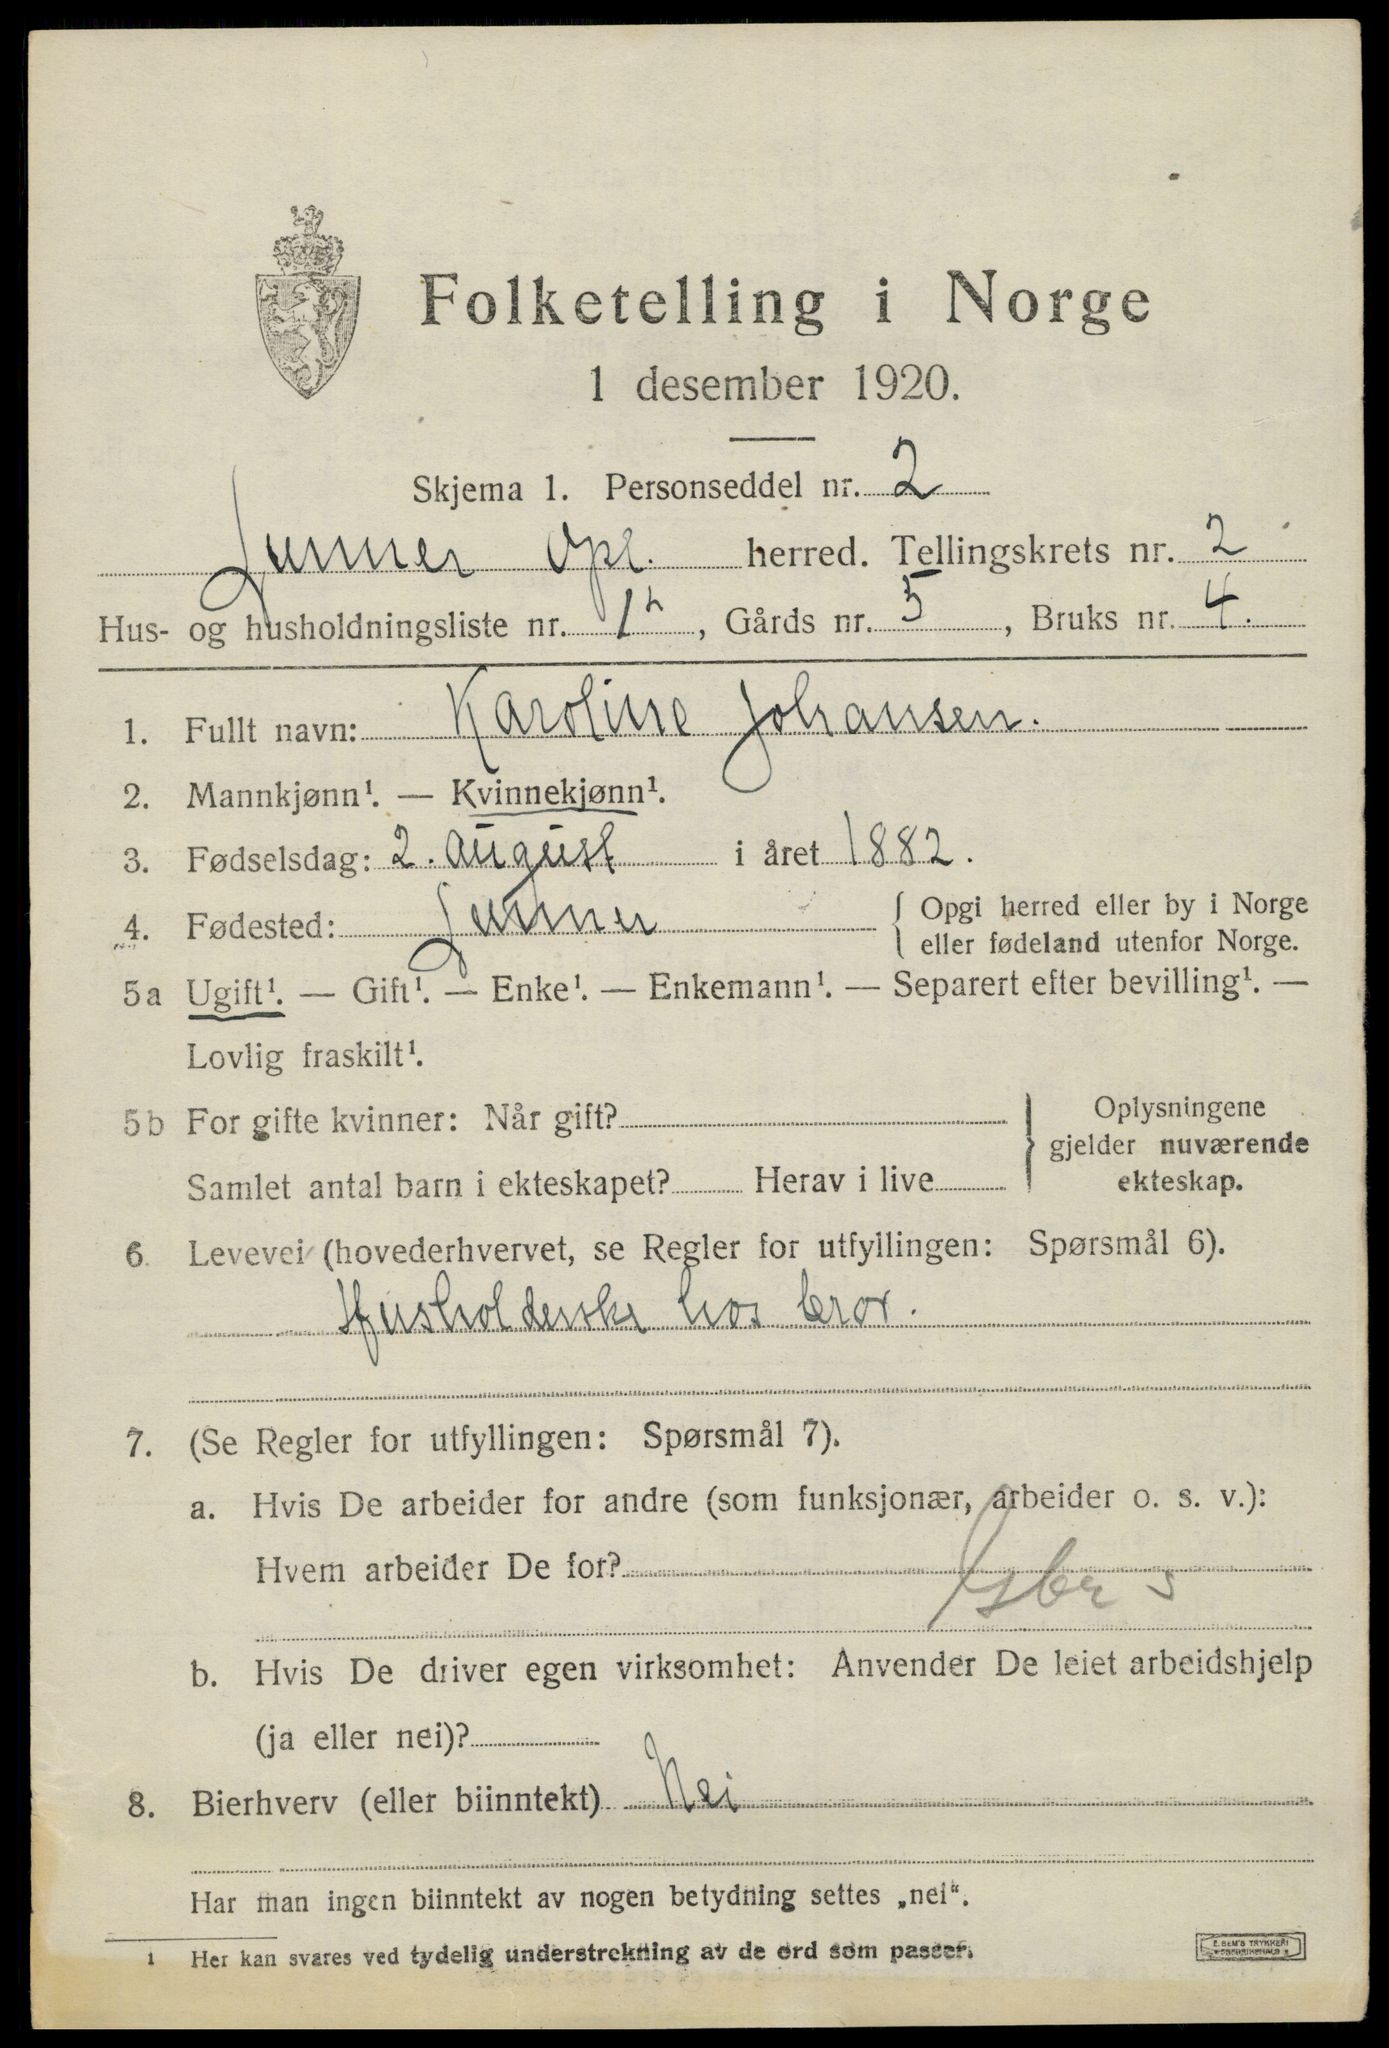 Folketelling i Norge
1 desember 1920.
Skjema 1. Personseddel nr. 2
Lunner Opl. herred. Tellingskrets nr. 2
Hus- og husholdningsliste nr. 12, Gårds nr. 5, Bruks nr. 4.
1. Fullt navn: Karoline Johansen.
2. Mannkjønn¹. — Kvinnekjønn¹.
3. Fødselsdag: 2. august i året 1882.
4. Fødested: Lunner { Opgi herred eller by i Norge
eller fødeland utenfor Norge.
5a Ugift¹. — Gift¹. — Enke¹. — Enkemann¹. — Separert efter bevilling¹. —
Lovlig fraskilt¹.
5b For gifte kvinner: Når gift?
Samlet antal barn i ekteskapet? Herav i live
} Oplysningene
gjelder nuværende
ekteskap.
6. Levevei (hovederhvervet, se Regler for utfyllingen: Spørsmål 6).
Husholderske hos bror.
7. (Se Regler for utfyllingen: Spørsmål 7).
a. Hvis De arbeider for andre (som funksjonær, arbeider o. s. v.):
Hvem arbeider De for?
b. Hvis De driver egen virksomhet: Anvender De leiet arbeidshjelp
(ja eller nei)?
8. Bierhverv (eller biinntekt) Nei
Har man ingen biinntekt av nogen betydning settes „nei“.
1 Her kan svares ved tydelig understrekning av de ord som passer.
E. SEM'S TRYKKERI
FREDRIKSHALD